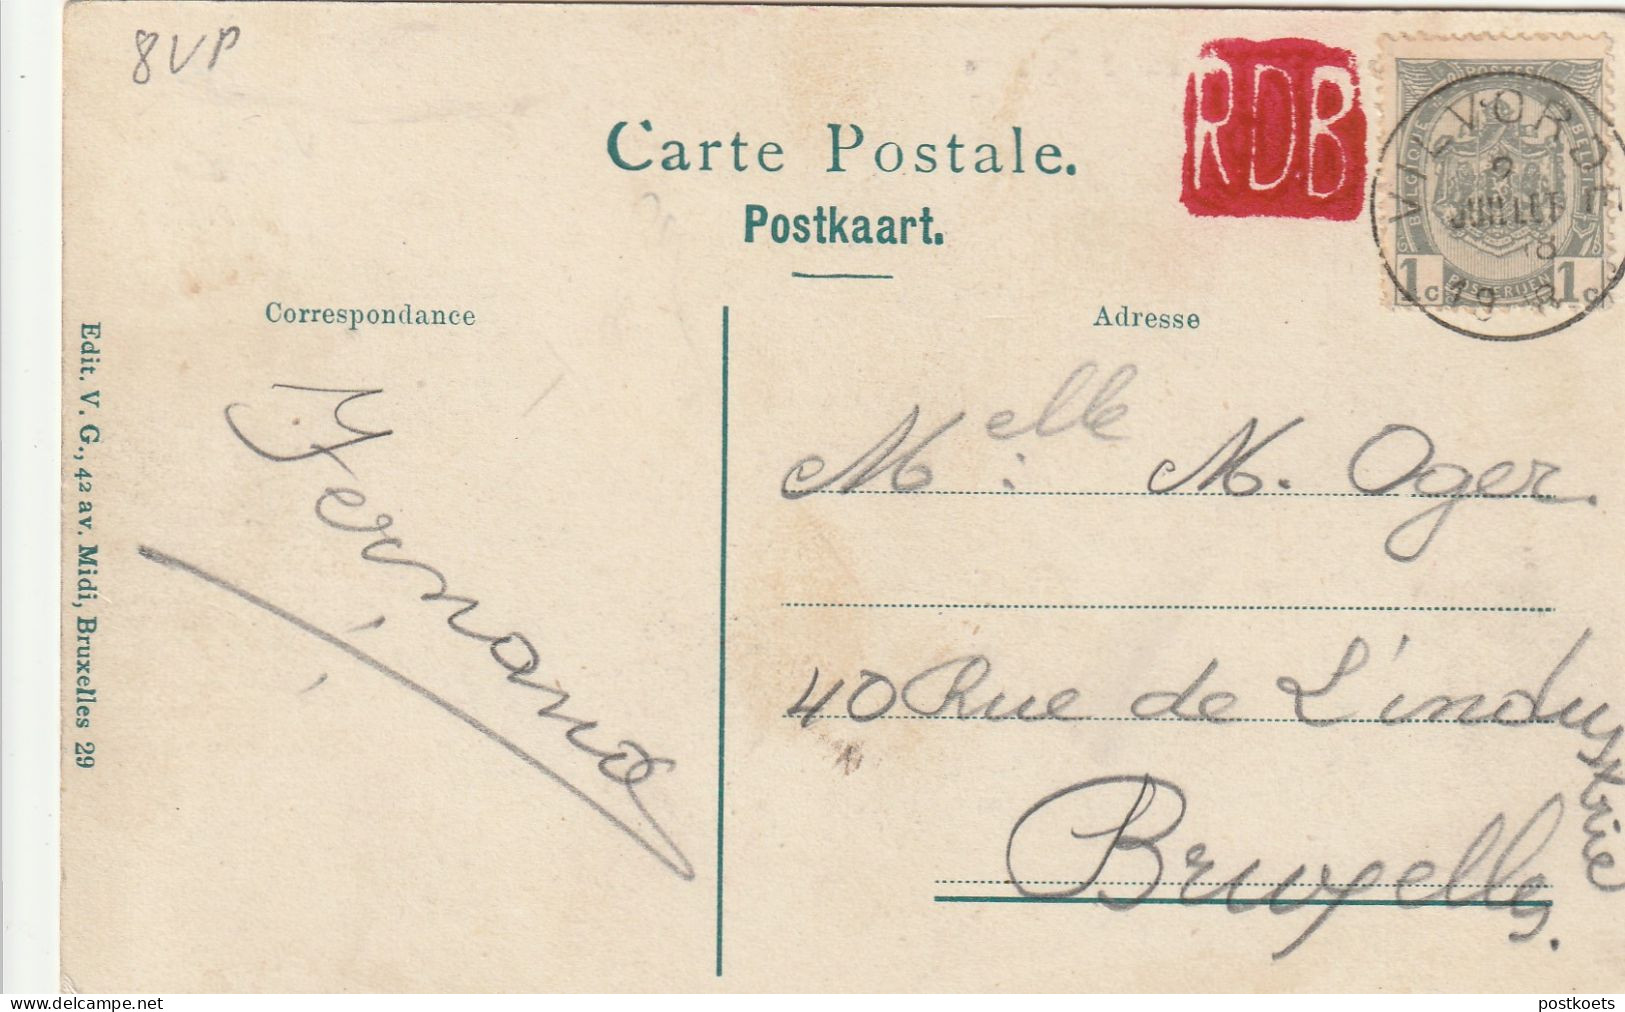 8VP
RDB
Carte Postale.
Postkaart.
Correspondance
Adresse
POSTES
BELGIQUE
BELGIE
POSTERIJEN
1c 1c
VILVORDE
JUILLET
Edit. V. G., 42 av. Midi, Bruxelles 29
Fernand
Melle: M. Oger.
40 Rue de L'industrie
Bruxelles.
delcampe.net
postkoets